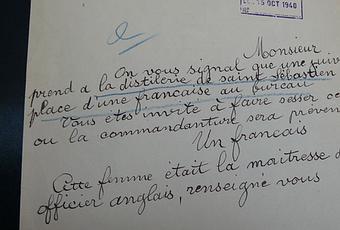 15 OCT 1940
Monsieur
On vous signal que une juive
prend a la distilerie de saint Sébastien
place d'une francaise au bureau
Vous êtes invité a faire sesser ce
ou la commandanture sera préven
Un francais
Cette femme était la maîtresse d
officier anglais, renseigné vous